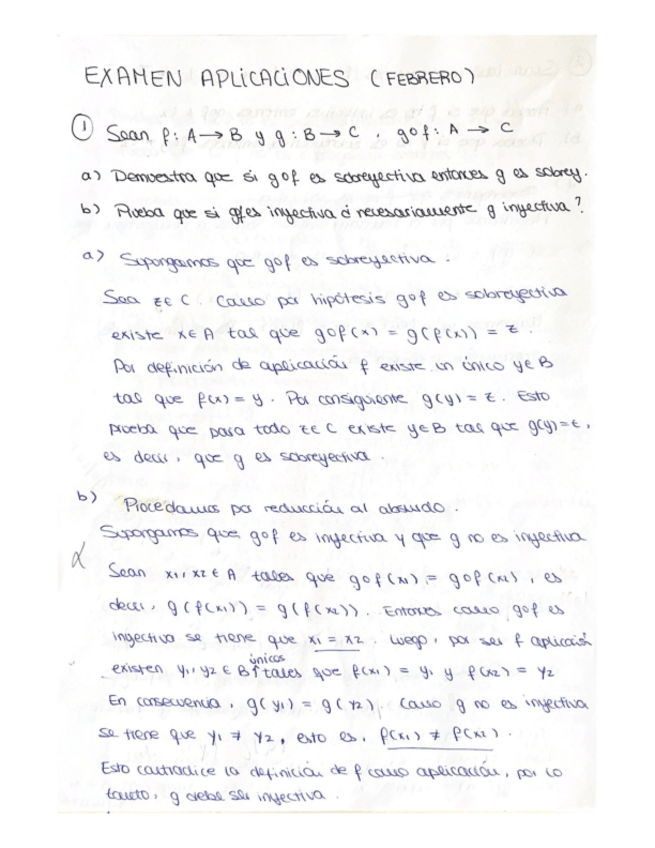 EXAMEN APLICACIONES (FEBRERO)
① Sean f: A → B y g: B → C, gof: A → C
a) Demuestra que si gof es sobreyectiva entonces g es sobrey.
b) Prueba que si gof es inyectiva ¿ necesariamente g inyectiva?
a) Supongamos que gof es sobreyectiva.
Sea z ∈ C. Como por hipótesis gof es sobreyectiva
existe x ∈ A tal que gof(x) = g(f(x)) = z.
Por definición de aplicación f existe un único y ∈ B
tal que f(x) = y. Por consiguiente g(y) = z. Esto
prueba que para todo z ∈ C existe y ∈ B tal que g(y) = z,
es decir, que g es sobreyectiva.
b) Procedamos por reducción al absurdo.
Supongamos que gof es inyectiva y que g no es inyectiva
Sean x₁, x₂ ∈ A tales que gof(x₁) = gof(x₂), es
decir, g(f(x₁)) = g(f(x₂)). Entonces como gof es
inyectiva se tiene que x₁ = x₂. Luego, por ser f aplicación
existen y₁, y₂ ∈ B únicos tales que f(x₁) = y₁ y f(x₂) = y₂
En consecuencia, g(y₁) = g(y₂). Como g no es inyectiva
se tiene que y₁ ≠ y₂, esto es, f(x₁) ≠ f(x₂).
Esto contradice la definición de f como aplicación, por lo
tanto, g debe ser inyectiva.